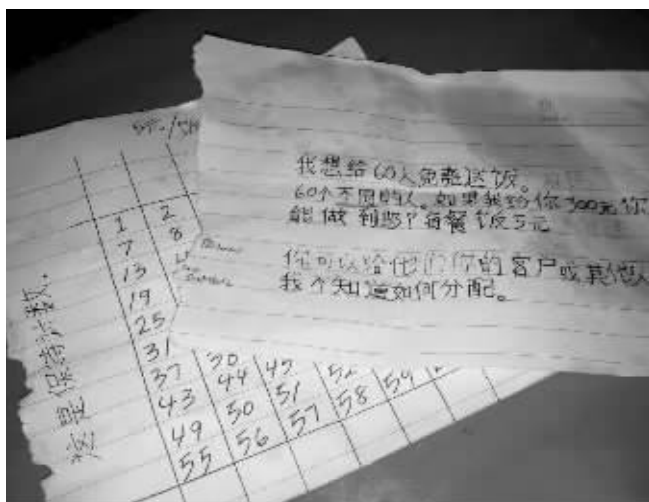 我想给60人免费送饭。
60个不同的人。如果我给你300元你
能做到吗?每餐饭5元
你可以给他们你的客户或其他人
我不知道如何分配。
这是保持计数。
1 2
7 8
13
19
25
31
37
43 44 45
49 50 51
55 56 57 58 59